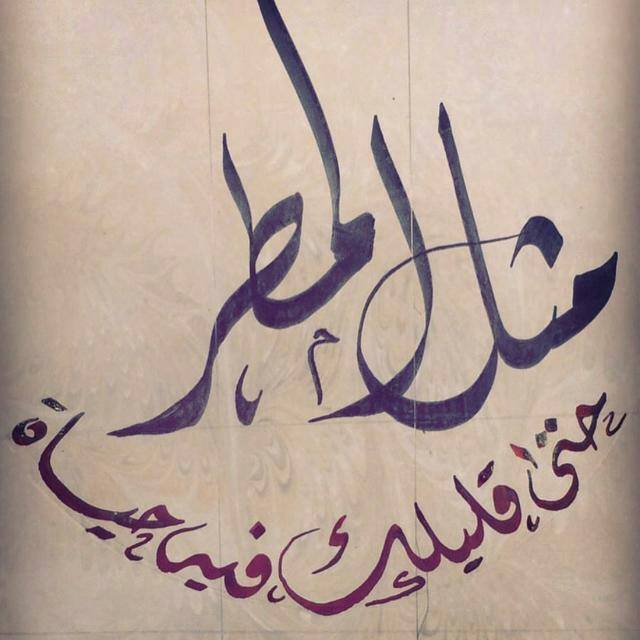 مثل المطر
حتى قليلك فيه حياة